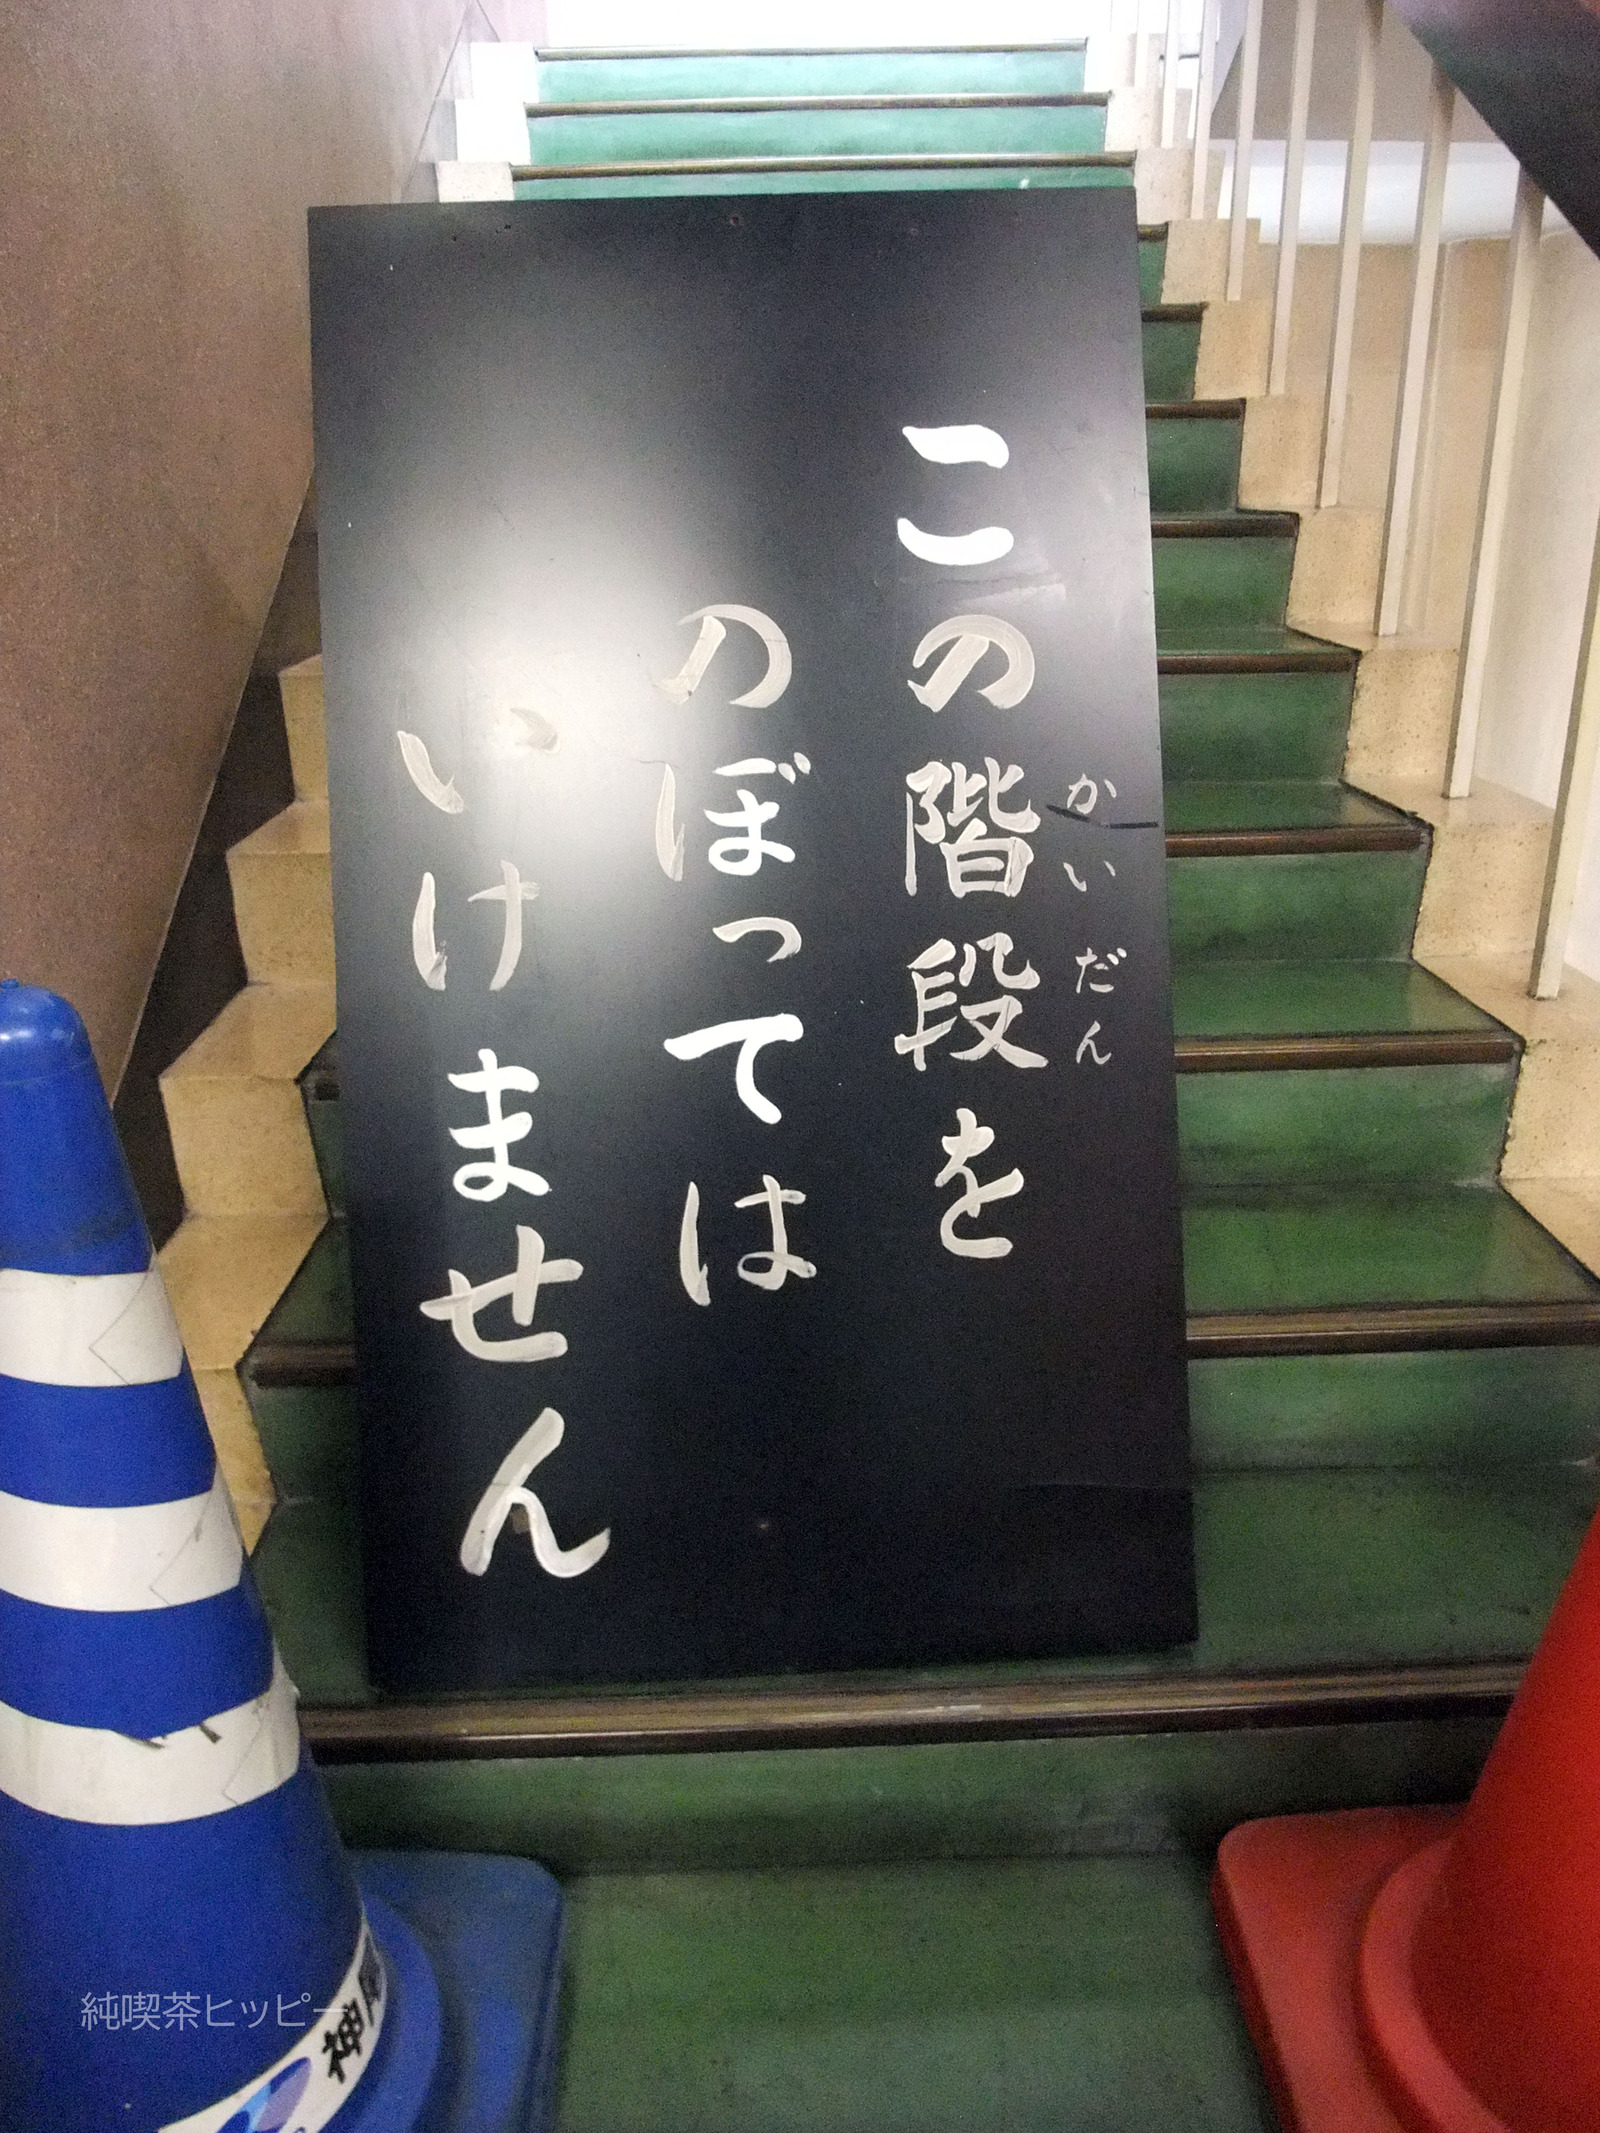 この階段を
かいだん
のぼっては
いけません
純喫茶ヒッピー
神